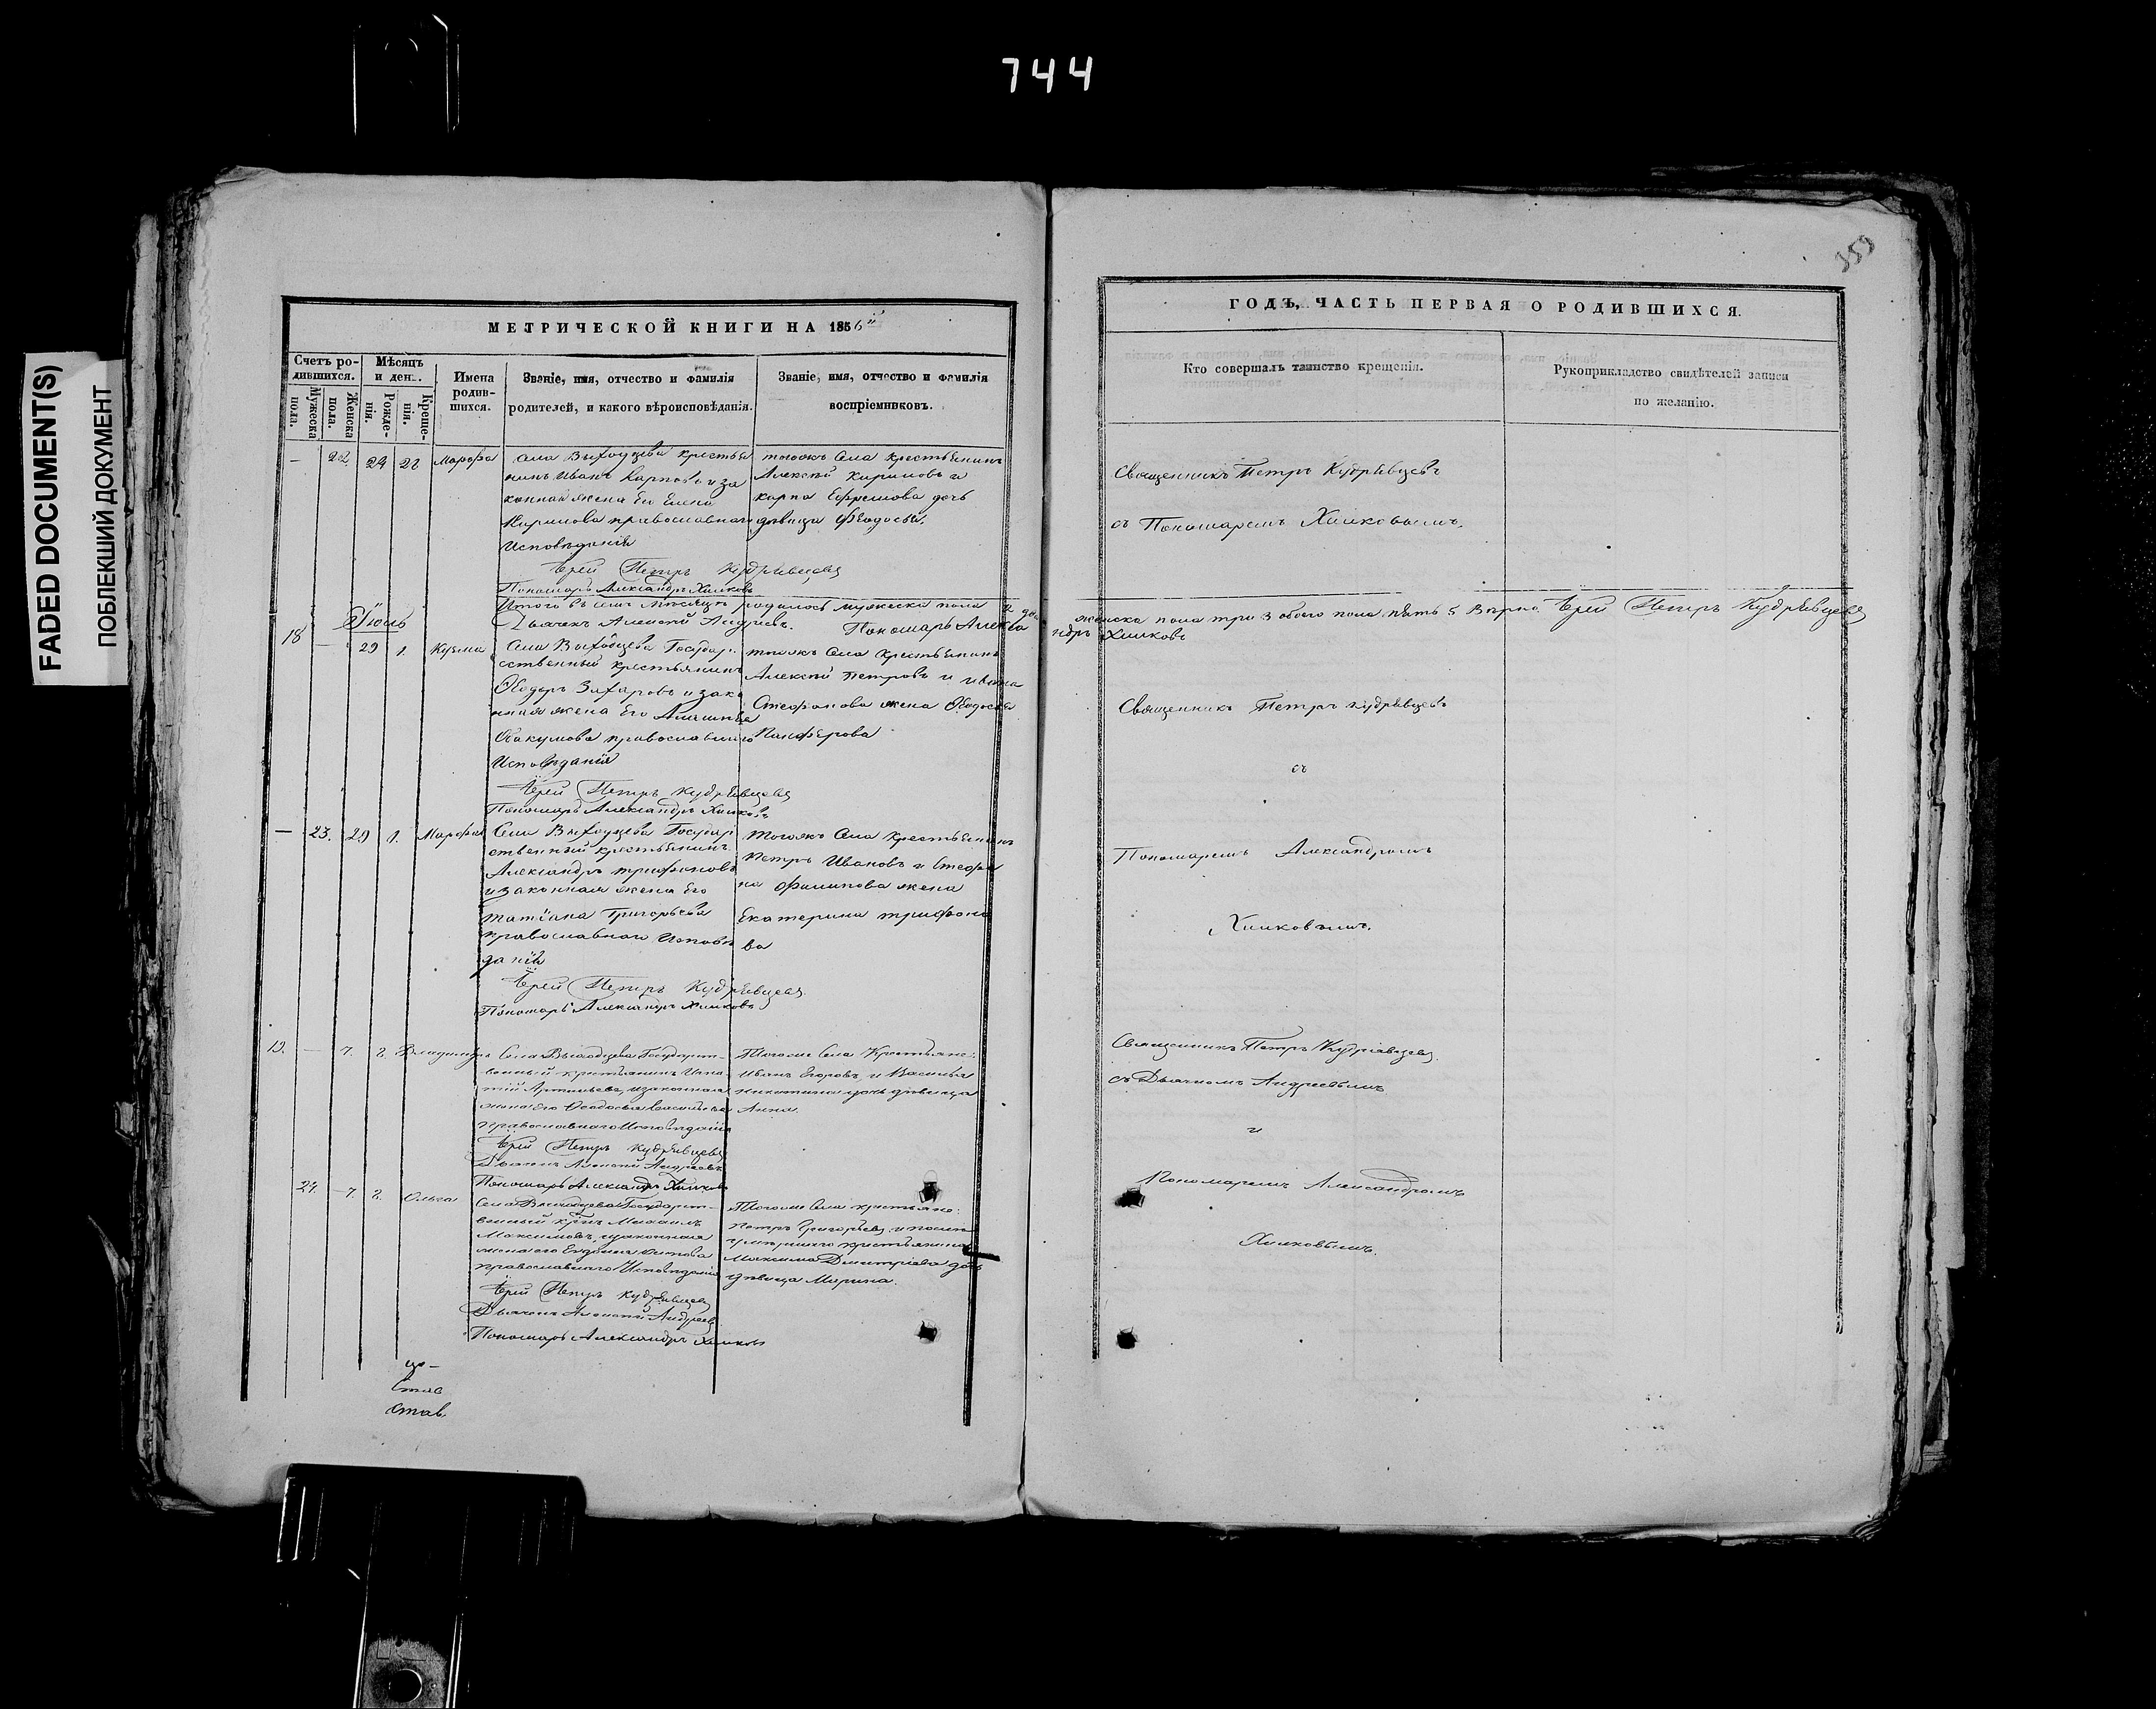 744
FADED DOCUMENT(S)
ПОБЛЕКШИЙ ДОКУМЕНТ
359
МЕТРИЧЕСКОЙ КНИГИ НА 1856й
Счетъ ро-
дившихся.
Мужеска
пола.
Женска
пола.
Мѣсяцъ
и ден.
Рожде-
нія.
Креще-
нія.
Имена
родив-
шихся.
Званіе, имя, отчество и фамилія
родителей, и какого вѣроисповѣданія.
Званіе, имя, отчество и фамилія
воспріемниковъ.
— 22. 24 28 Марфа
села Выходцева крестья
нинъ Иванъ Карповъ и за
конная жена Его Елена
Кирилова православнаго
Исповѣданія
Іерей Петръ Кудрявцевъ
Пономарь Александръ Хилковъ
тогожъ села крестьянинъ
Алексѣй Кириловъ и
карпа Ефремова дочь
дѣвица Феодосья.
Итого въ семъ мѣсяцѣ родилось мужеска пола 2 два
Дьячекъ Алексѣй Андреевъ. Пономарь Алекса
Іюль
18 — 29 1. Кузма
Села Выходцева Государ
ственный крестьянинъ
Феодоръ Захаровъ и зако
нная жена Его
Авакумова православнаго
Исповѣданія
Іерей Петръ Кудрявцевъ
Пономарь Александръ Хилковъ
тогожъ села крестьянинъ
Алексѣй Петровъ и ивана
Стефанова жена Феодосья
Панферова
— 23. 29 1. Марфа
Села Выходцева Государ
ственный крестьянинъ
Александръ трифоновъ
и законная жена Его
татіана Григорьева
православнаго Исповѣ
данія
Іерей Петръ Кудрявцевъ
Пономарь Александръ Хилковъ
тогожъ Села крестьянинъ
Петръ Ивановъ и Стефа
на Филипова жена
Екатерина трифоно
ва
19. — 7. 8. Владимиръ
Села Выходцева Государст-
венный крестьянинъ Игна
тій Артемьевъ, и законная
жена его Феодосья Васильева
православнаго Исповѣданія
Іерей Петръ Кудрявцевъ
Дьячекъ Алексѣй Андреевъ
Пономарь Александръ Хилковъ
Тогоже Села Крестьяне:
Иванъ Егоровъ, и Василья
Никитина дочь дѣвица
Анна.
24. — 7. 8. Ольга
Села Выходцева Государст-
венный крнъ Михаилъ
Максимовъ, и законная
жена его Евдокия Титова
православнаго Исповѣданія
Іерей Петръ Кудрявцевъ
Дьячекъ Алексѣй Андреевъ
Пономарь Александръ Хилковъ
Тогоже Села крестьяне:
Петръ Григорьевъ, и
крестьянина
Максима Дмитріева дочь
дѣвица Марина.
ГОДЪ, ЧАСТЬ ПЕРВАЯ О РОДИВШИХСЯ.
Кто совершалъ таинство крещенія.
Рукоприкладство свидѣтелей записи
по желанію.
Священникъ Петръ Кудрявцевъ
съ Пономаремъ Хилковымъ.
женска пола три 3 обоего пола пять 5 Вѣрно Іерей Петръ Кудрявцевъ
ндръ Хилковъ
Священникъ Петръ Кудрявцевъ
съ
Пономаремъ Александромъ
Хилковымъ.
Священникъ Петръ Кудрявцевъ.
съ Дьячкомъ Андреевымъ
и
Пономаремъ Александромъ
Хилковымъ.